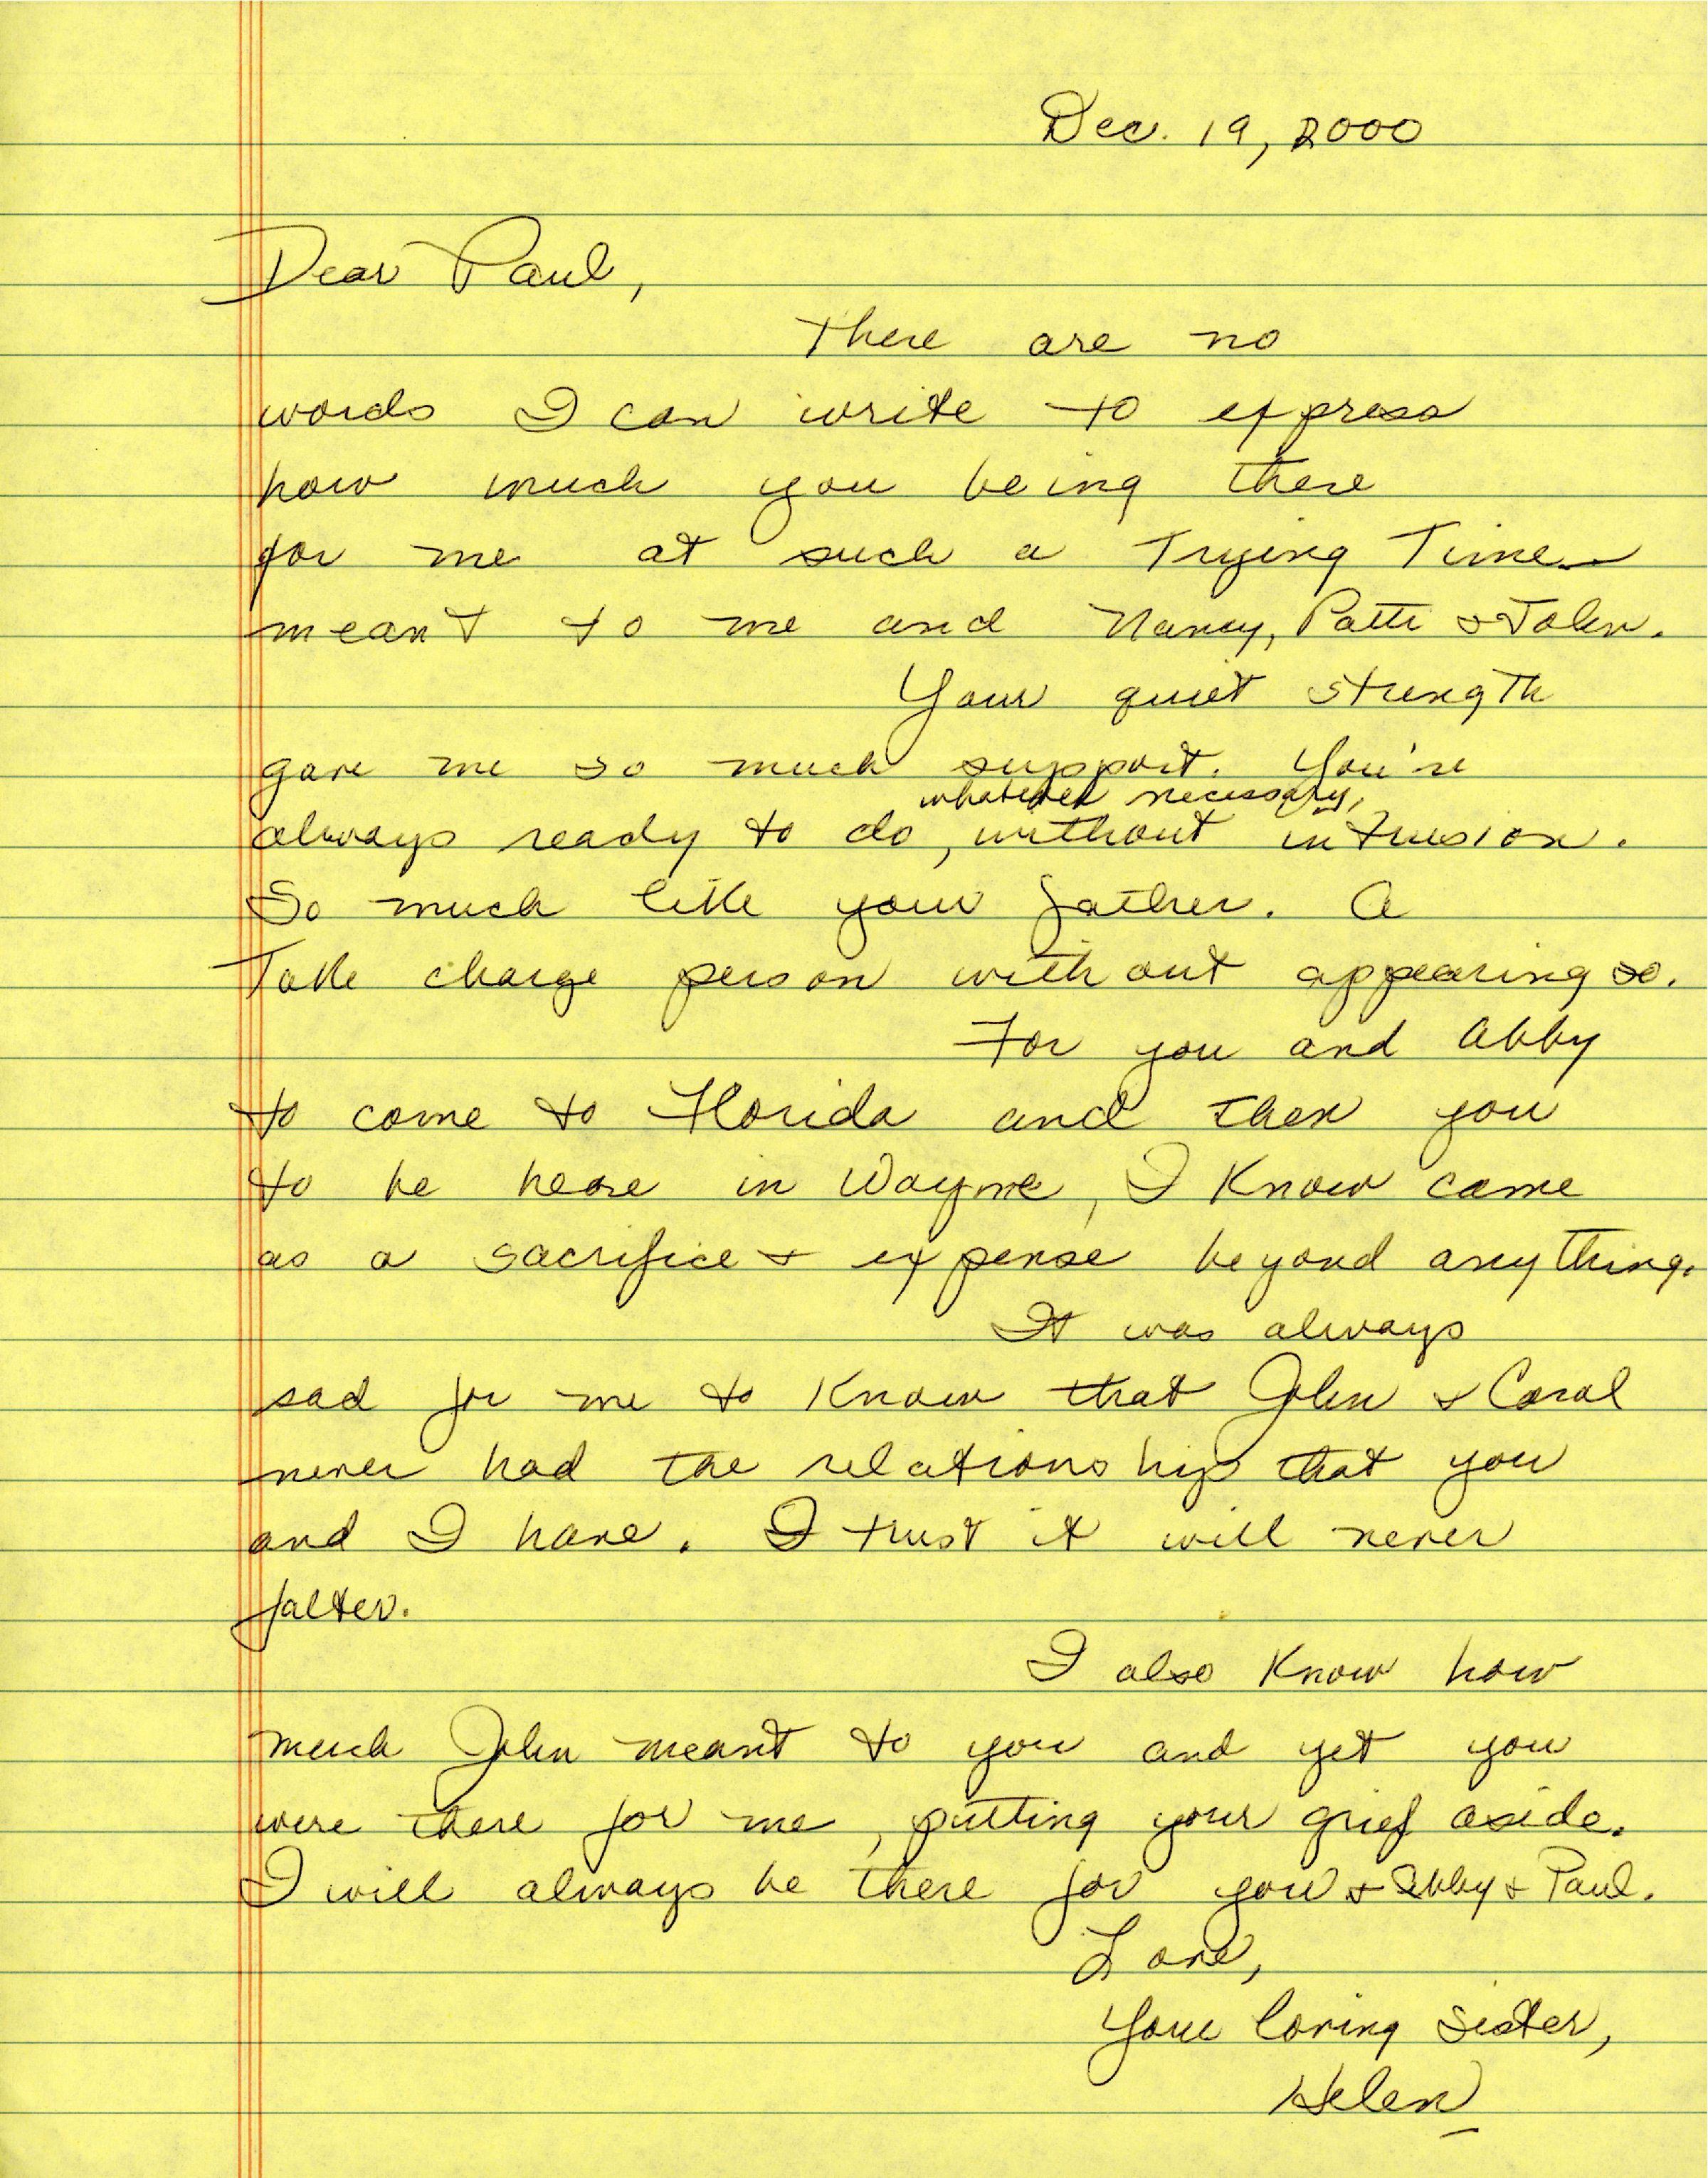 Dec. 19, 2000
Dear Paul,
There are no
words I can write to express
how much you being there
for me at such a Trying Time
meant to me and Nancy, Patti & John.
Your quiet strength
gave me so much support. You're
whatever necessary,
always ready to do, without intrusion.
So much like your father. A
Take charge person without appearing so.
For you and Abby
to come to Florida and then you
to be here in Wayne, I Know came
as a sacrifice & expense beyond anything.
It was always
sad for me to Know that John & Carol
never had the relationship that you
and I have. I trust it will never
falter.
I also Know how
much John meant to you and yet you
were there for me, putting your grief aside.
I will always be there for you & Abby & Paul.
Love,
Your loving sister,
Helen